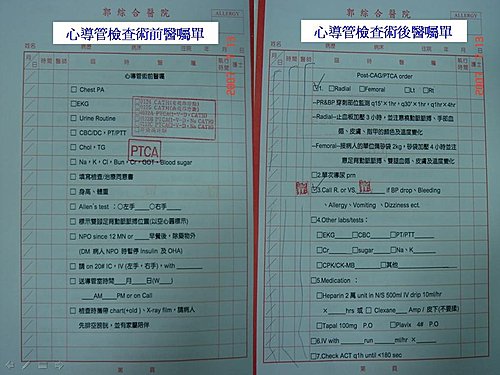 郭綜合醫院
ALLERGY
心導管檢查術前醫囑單
姓名 病歷 床號
月 日 時間 醫師
執行時間
護士
2007
心導管術前醫囑
□Chest PA
□EKG
□Urine Routine
□CBC/DC、PT/PTT
□Chol、TG
PTCA
□Na、K、Cl、Bun、Cr、GOT、Blood sugar
□填寫檢查/治療同意書
□身高、體重
□Allen's test：○左手 ○右手
□標示雙腳足背動脈脈搏位置(以空心圓標示)
□NPO since 12 MN or 早餐後，除藥物外
(DM 病人 NPO 時暫停 Insulin 及 OHA)
□請 on 20# IC，IV (左手、右手)，with
□送導管室時間 月 日(W )
AM PM or on Call
□檢查時攜帶 chart(+old)、X-ray film，請病人
先排空膀胱，並有家屬陪伴
第 頁
郭綜合醫院
ALLERGY
心導管檢查術後醫囑單
姓名 病歷 床號
月 日 時間 醫師
執行時間
護士
2007
Post-CAG/PTCA order
□1. □Radial □Femoral □Lt □Rt
–PR&BP 穿刺部位監測 q15'×1hr，q30'×1hr，q1hr×4hr
–Radial–止血帶加壓 3 小時，並注意橈動脈脈搏、手部血
循、皮膚、指甲的顏色及溫度變化
–Femoral–按病人的單位擺砂袋 2kg，砂袋加壓 4 小時並注
意足背動脈脈搏、雙腿血循、皮膚及溫度變化
□2.單次導尿 prn
□3.Call R. or VS. if BP drop、Bleeding
、Allergy、Vomiting、Dizziness ect.
□4.Other labs/tests：
□EKG □CBC □PT/PTT
□Cr □sugar □Na、K
□CPK/CK-MB □其他
□5.Medication：
□Heparin 2 萬 unit in N/S 500ml IV drip 10ml/hr
× hrs 或 □Clexane Amp / 皮下(不要揉)
□Tapal 100mg P.O □Plavix 4# P.O
□6.IV with run ml/hr ×
□7.Check ACT q1h until <180 sec
第 頁